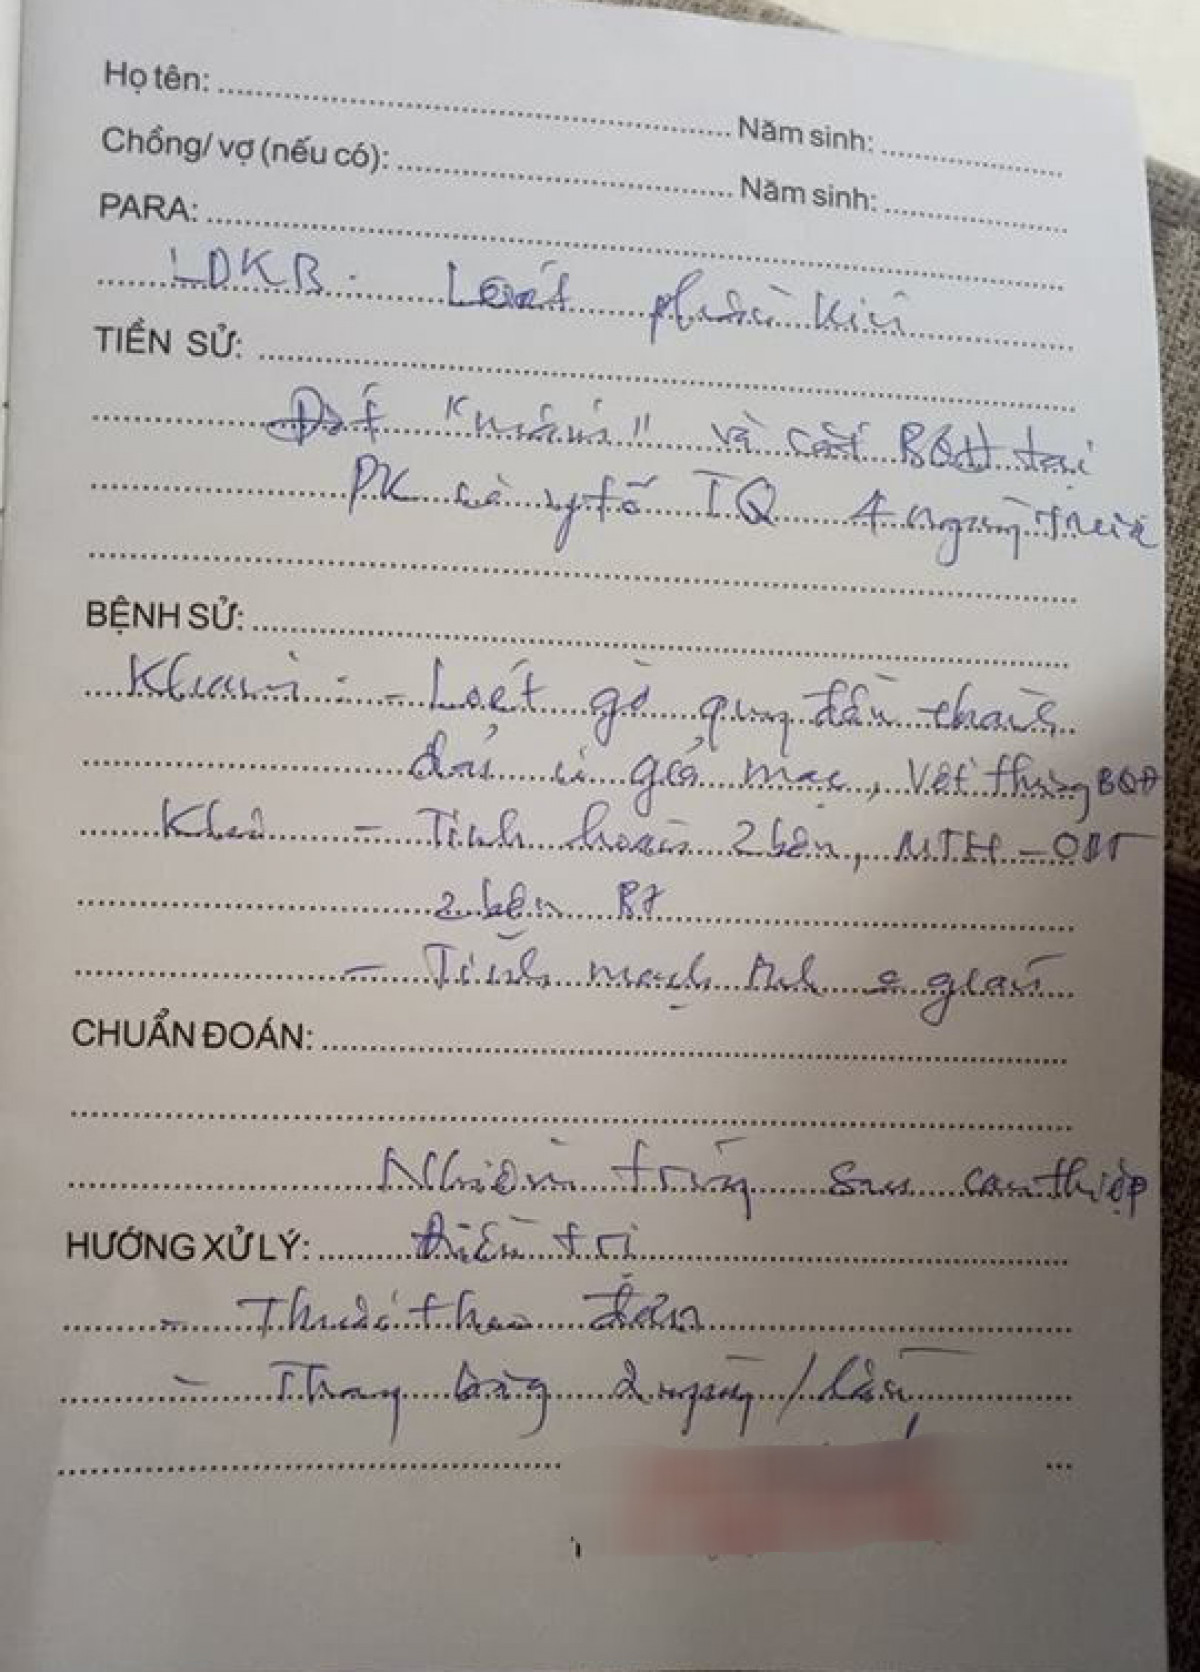 Họ tên: ........ Năm sinh: ........
Chồng/ vợ (nếu có): ........ Năm sinh: ........
PARA: ........
LDKB. Loét
TIỀN SỬ: ........
Đốt " " và cắt BQĐ tại
PK y tế TQ 4 ngày trước
BỆNH SỬ: ........
Khám: - Loét gờ quy đầu thành
đám có giả mạc, vết thương BQĐ
Khô - Tinh hoàn 2 bên, MTH - ODT
2 bên BT
- Tĩnh mạch tinh 0 giãn
CHUẨN ĐOÁN: ........
Nhiễm trùng sau can thiệp
HƯỚNG XỬ LÝ: Điều trị
- Thuốc theo đơn
- Thay băng 2 ngày/lần